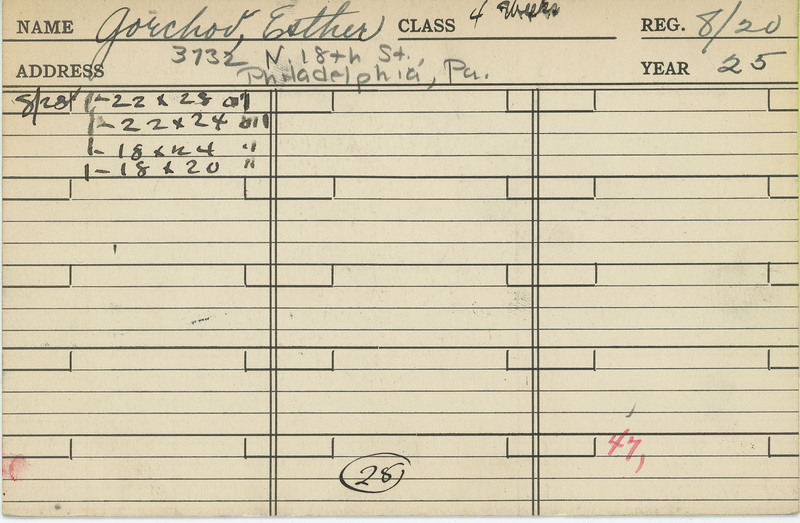 NAME Gorchov, Esther CLASS 4 Weeks REG. 8/20
ADDRESS 3732 N. 18th St., YEAR 25
Philadelphia, Pa.
8/28 1-22 x 28 oil
1-22 x 24 oil
1-18 x 24 "
1-18 x 20 "
47,
28